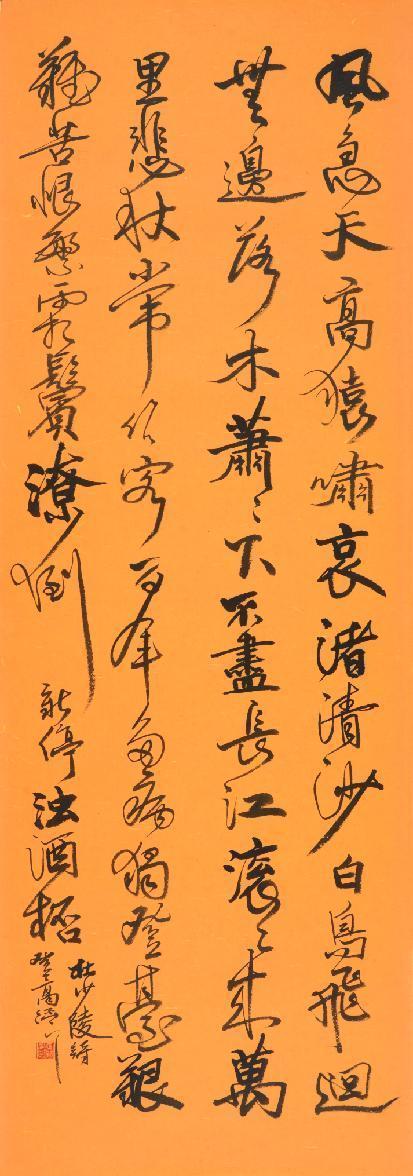 風急天高猿嘯哀渚清沙白鳥飛迴
無邊落木蕭〻下不盡長江滾〻來萬
里悲秋常作客百年多病獨登臺艱
難苦恨繁霜鬢潦倒新停浊酒桮
杜少陵詩
登高